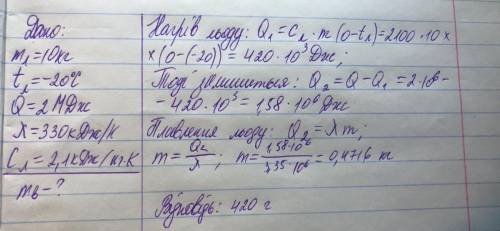 Дано:
m₁=10кг
t л=-20°C
Q=2 МДж
λ=330кДж/к
Cл=2,1кДж/кг·К
mв-?
Нагрів льоду: Q₁=Cл·m(0-tл)=2100·10×
×(0-(-20))=420·10³Дж;
Тоді залишиться: Q₂=Q-Q₁=2·10⁶-
-420·10³=1,58·10⁶Дж
Плавлення льоду: Q₂=λm;
m=Q₂/λ; m=1,58·10⁶/3,35·10⁶=0,4716 кг
Відповідь: 420 г